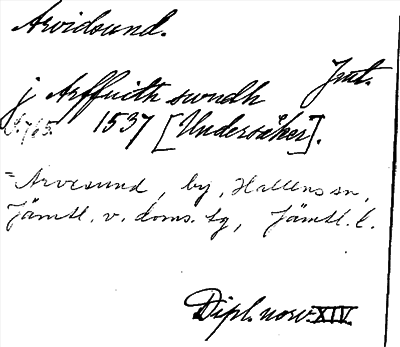 Arvidsund.
Jmt.
j Arffuith swndh
1537 [Undersåker].
= Arvesund, by, Hallens sn,
Jämtl. v. doms. tg, Jämtl. l.
Dipl. norv. XIV